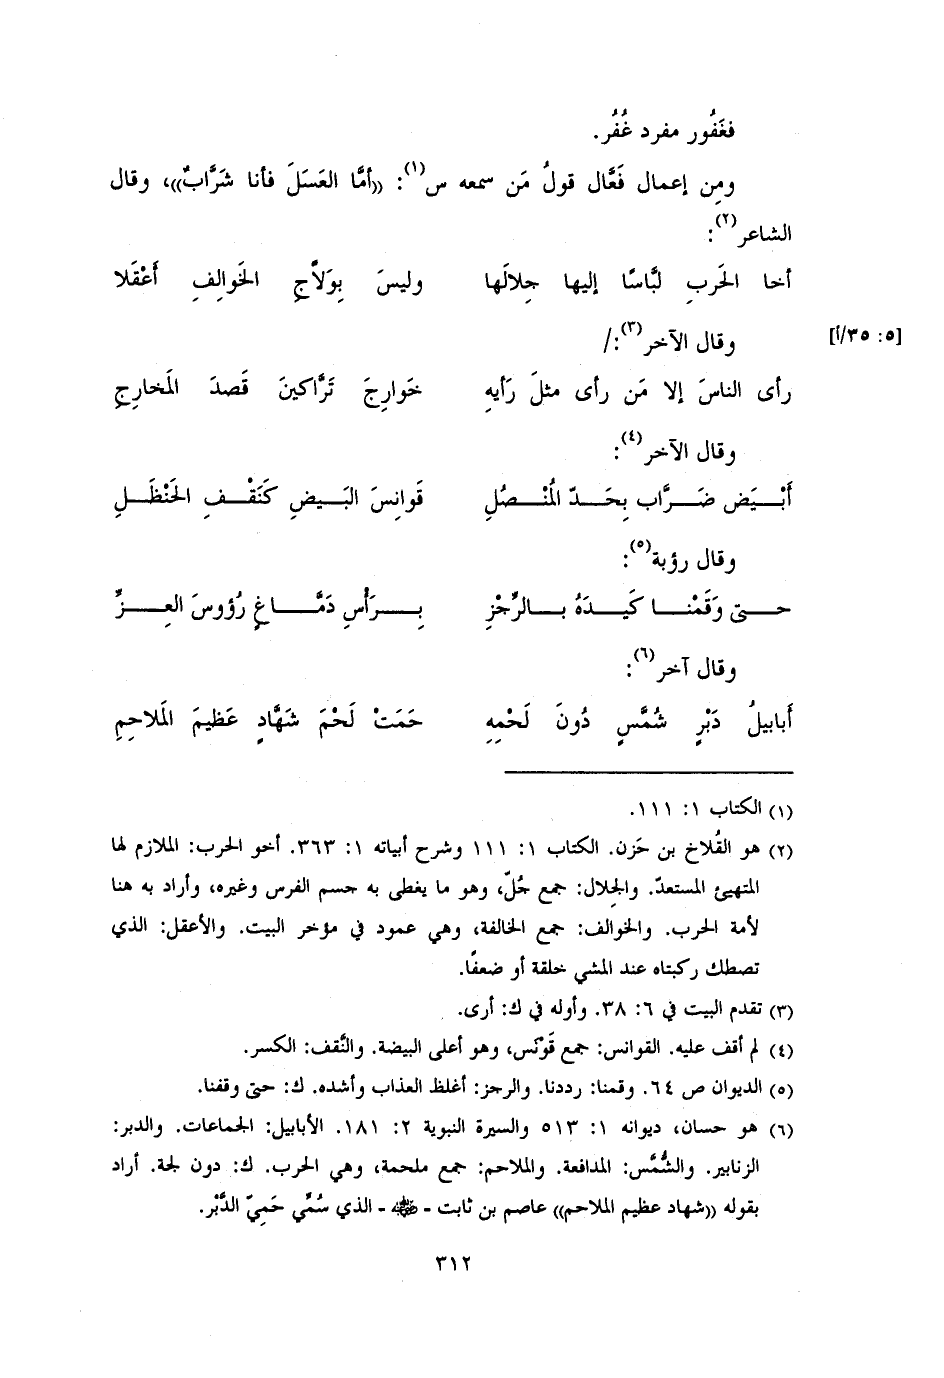 فغَفُور مفرد غُفُر.
ومِن إعمال فَعَّال قولُ مَن سمعه س(١): «أمَّا العَسَلَ فأنا شَرَّابٌ»، وقال
الشاعر(٢):
أخا الحَربِ لبَّاسًا إليها جِلالَها وليسَ بِوَلاَّجِ الخَوالِفِ أَعْقَلا
وقال الآخر(٣):/ [٥: ٣٥/أ]
رأى الناسَ إلا مَن رأى مثلَ رَأيِهِ خَوارِجَ تَرَّاكينَ قَصدَ المَخارِجِ
وقال الآخر(٤):
أَبْيَض ضَرَّاب بِحَدّ المُنْصُلِ قَوانِسَ البَيضِ كَنَقْفِ الحَنْظَلِ
وقال رؤبة(٥):
حتى وَقَمْنا كَيدَهُ بالرِّجْزِ بِرَأْسِ دَمَّاغٍ رُؤوسَ العِزِّ
وقال آخر(٦):
أَبابيلُ دَبْرٍ شُمَّسٍ دُونَ لَحْمِهِ حَمَتْ لَحْمَ شَهَّادٍ عَظيمَ المَلاحِمِ
(١) الكتاب ١: ١١١.
(٢) هو القُلاخ بن حَزن. الكتاب ١: ١١١ وشرح أبياته ١: ٣٦٣. أخو الحرب: الملازم لها
المتهيئ المستعدّ. والجِلال: جمع جُلّ، وهو ما يغطى به جسم الفرس وغيره، وأراد به هنا
لأمة الحرب. والخوالف: جمع الخالفة، وهي عمود في مؤخر البيت. والأعقل: الذي
تصطك ركبتاه عند المشي خلقة أو ضعفًا.
(٣) تقدم البيت في ٦: ٣٨. وأوله في ك: أرى.
(٤) لم أقف عليه. القوانس: جمع قَوْنَس، وهو أعلى البيضة. والنَّقف: الكسر.
(٥) الديوان ص ٦٤. وقمنا: رددنا. والرجز: أغلظ العذاب وأشده. ك: حتى وقفنا.
(٦) هو حسان، ديوانه ١: ٥١٣ والسيرة النبوية ٢: ١٨١. الأبابيل: الجماعات. والدبر:
الزنابير. والشُّمَّس: المدافعة. والملاحم: جمع ملحمة، وهي الحرب. ك: دون لحة. أراد
بقوله «شهاد عظيم الملاحم» عاصم بن ثابت - ﷺ - الذي سُمِّي حَمِيّ الدَّبْر.
٣١٢